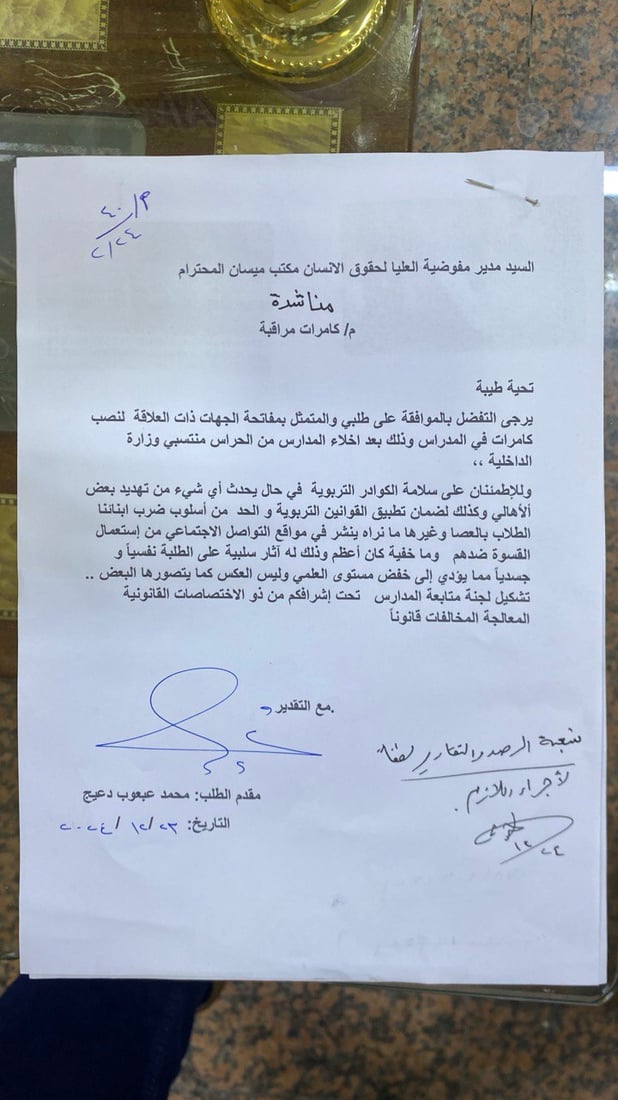 م/٤٠
٢/٢٤
السيد مدير مفوضية العليا لحقوق الانسان مكتب ميسان المحترام
مناشدة
م/ كامرات مراقبة
تحية طيبة
يرجى التفضل بالموافقة على طلبي والمتمثل بمفاتحة الجهات ذات العلاقة لنصب
كامرات في المدراس وذلك بعد اخلاء المدارس من الحراس منتسبي وزارة
الداخلية ،،
وللإطمئنان على سلامة الكوادر التربوية في حال يحدث أي شيء من تهديد بعض
ألأهالي وكذلك لضمان تطبيق القوانين التربوية و الحد من أسلوب ضرب ابنائنا
الطلاب بالعصا وغيرها ما نراه ينشر في مواقع التواصل الاجتماعي من إستعمال
القسوة ضدهم وما خفية كان أعظم وذلك له آثار سلبية على الطلبة نفسياً و
جسدياً مما يؤدي إلى خفض مستوى العلمي وليس العكس كما يتصورها البعض ..
تشكيل لجنة متابعة المدارس تحت إشرافكم من ذو الاختصاصات القانونية
المعالجة المخالفات قانوناً
.مع التقدير
مقدم الطلب: محمد عبعوب دعيج
التاريخ: ٢٣/ ١٢/ ٢٠٢٤
شعبة الرصد والتقارير لطفا
لأجراء اللازم .
١٢/٢٤